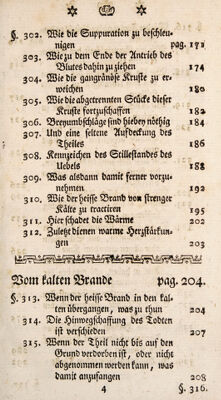 §. 302. Wie die Suppuration zu beschleu-
nigen pag. 171
303. Wie zu dem Ende der Antrieb des
Blutes dahin zu ziehen 174
304. Wie die gangränöse Kruste zu er-
weichen 180
305. Wie die abgetrennten Stücke dieser
Kruste fortzuschaffen 182
306. Breyumschläge sind hiebey nöthig 184
307. Und eine seltene Aufdeckung des
Theiles 186
308. Kennzeichen des Stillestandes des
Uebels 188
309. Was alsdann damit ferner vorzu-
nehmen 192
310. Wie der heisse Brand von strenger
Kälte zu tractiren 195
311. Hier schadet die Wärme 202
312. Zuletzt dienen warme Herzstärkun-
gen 203
Vom kalten Brande pag. 204.
§. 313. Wenn der heisse Brand in den kal-
ten übergangen, was zu thun 204
314. Die Hinwegschaffung des Todten
ist verschieden 207
315. Wenn der Theil nicht bis auf den
Grund verdorben ist, oder nicht
abgenommen werden kann, was
damit anzufangen 208
4 §. 316.